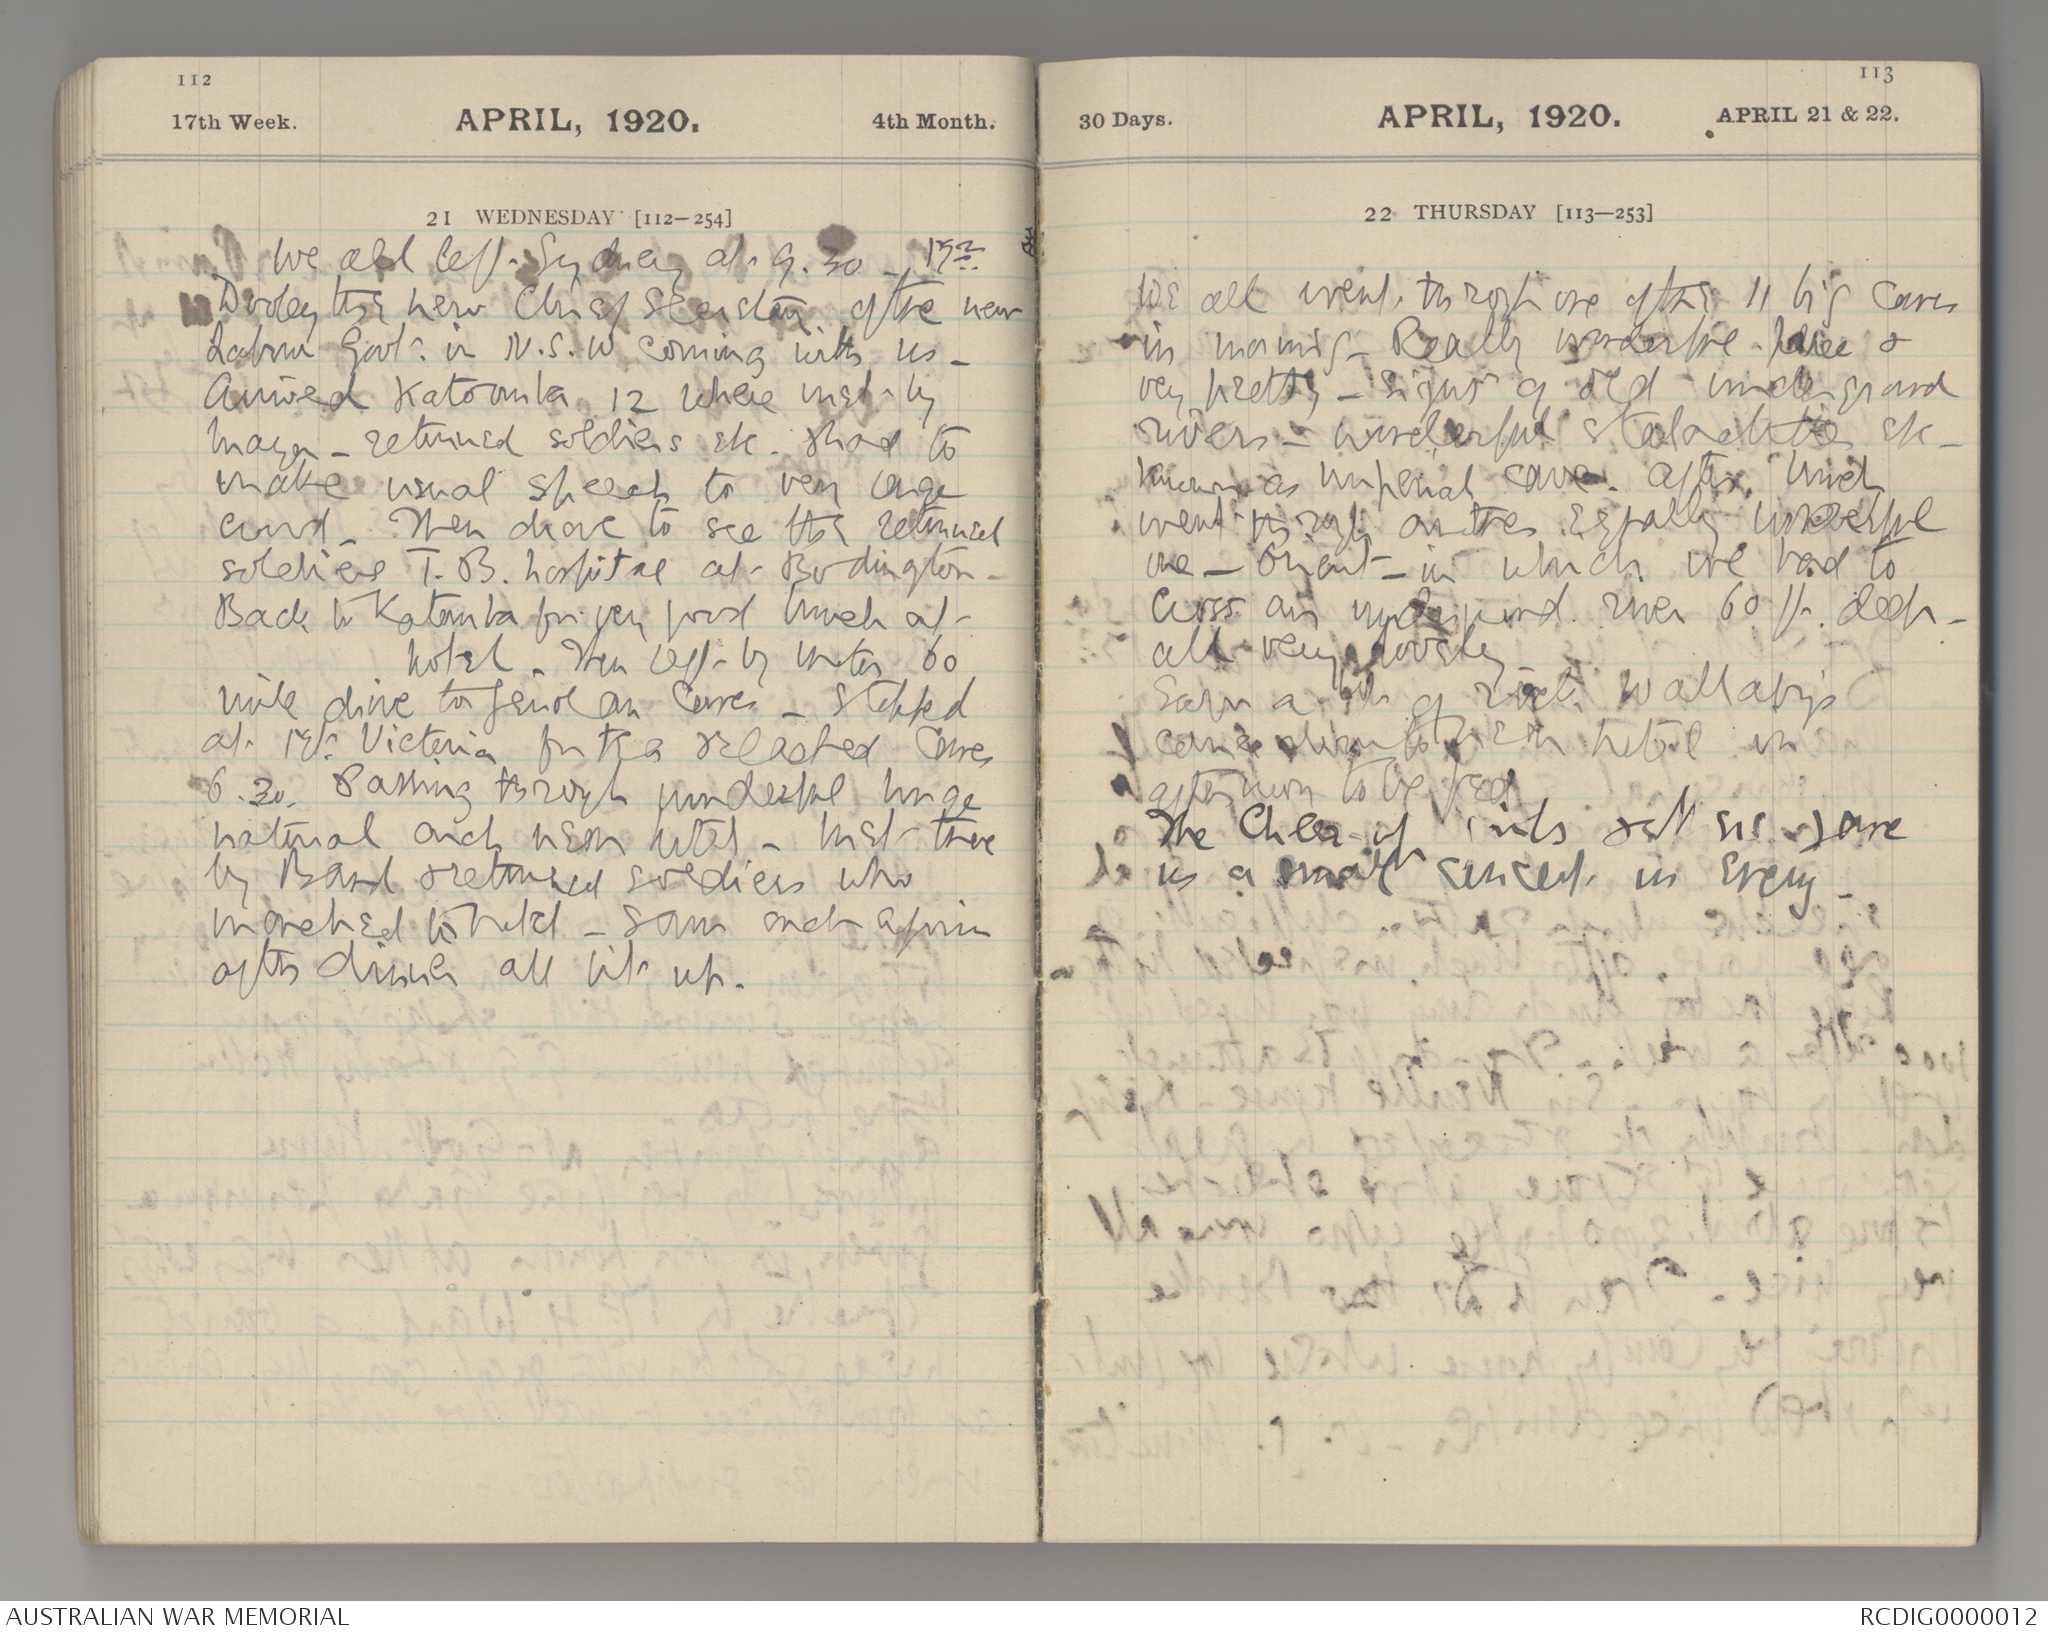 112
17th Week. APRIL, 1920. 4th Month.
21 WEDNESDAY [112—254]
We all left Sydney at 9.30 - Mr
Dooley the new Chief Secretary of the new
Labour Govt. in N.S.W coming with us -
Arrived Katoomba 12 where met by
Mayor - returned soldiers etc. & had to
make usual speech to very large
crowd - Then drove to see the returned
soldiers T.B. hospital at Bodington -
Back to Katoomba for very good lunch at
hotel - Then left by motor 60
mile drive to Jenolan Caves - Stopped
at Mt. Victoria for tea & reached Caves
6.30. Passing through wonderful huge
natural arch near hotel - Met there
by Band & returned soldiers who
marched to hotel - Saw arch again
after dinner all lit up.
113
30 Days. APRIL, 1920. APRIL 21 & 22.
22 THURSDAY [113—253]
We all went through one of the 11 big Caves
in morning - Really wonderful place &
very pretty - Signs of old underground
rivers - wonderful stalactites etc -
known as Imperial Cave. After lunch
went through another equally wonderful
one - Orient - in which we had to
cross an underground river 60 ft. deep -
all very lovely -
Saw a lot of rock Wallabys
come down to near hotel in
afternoon to be fed
The Cheer up girls &
us a small concert in Eveng -
AUSTRALIAN WAR MEMORIAL
RCDIG0000012